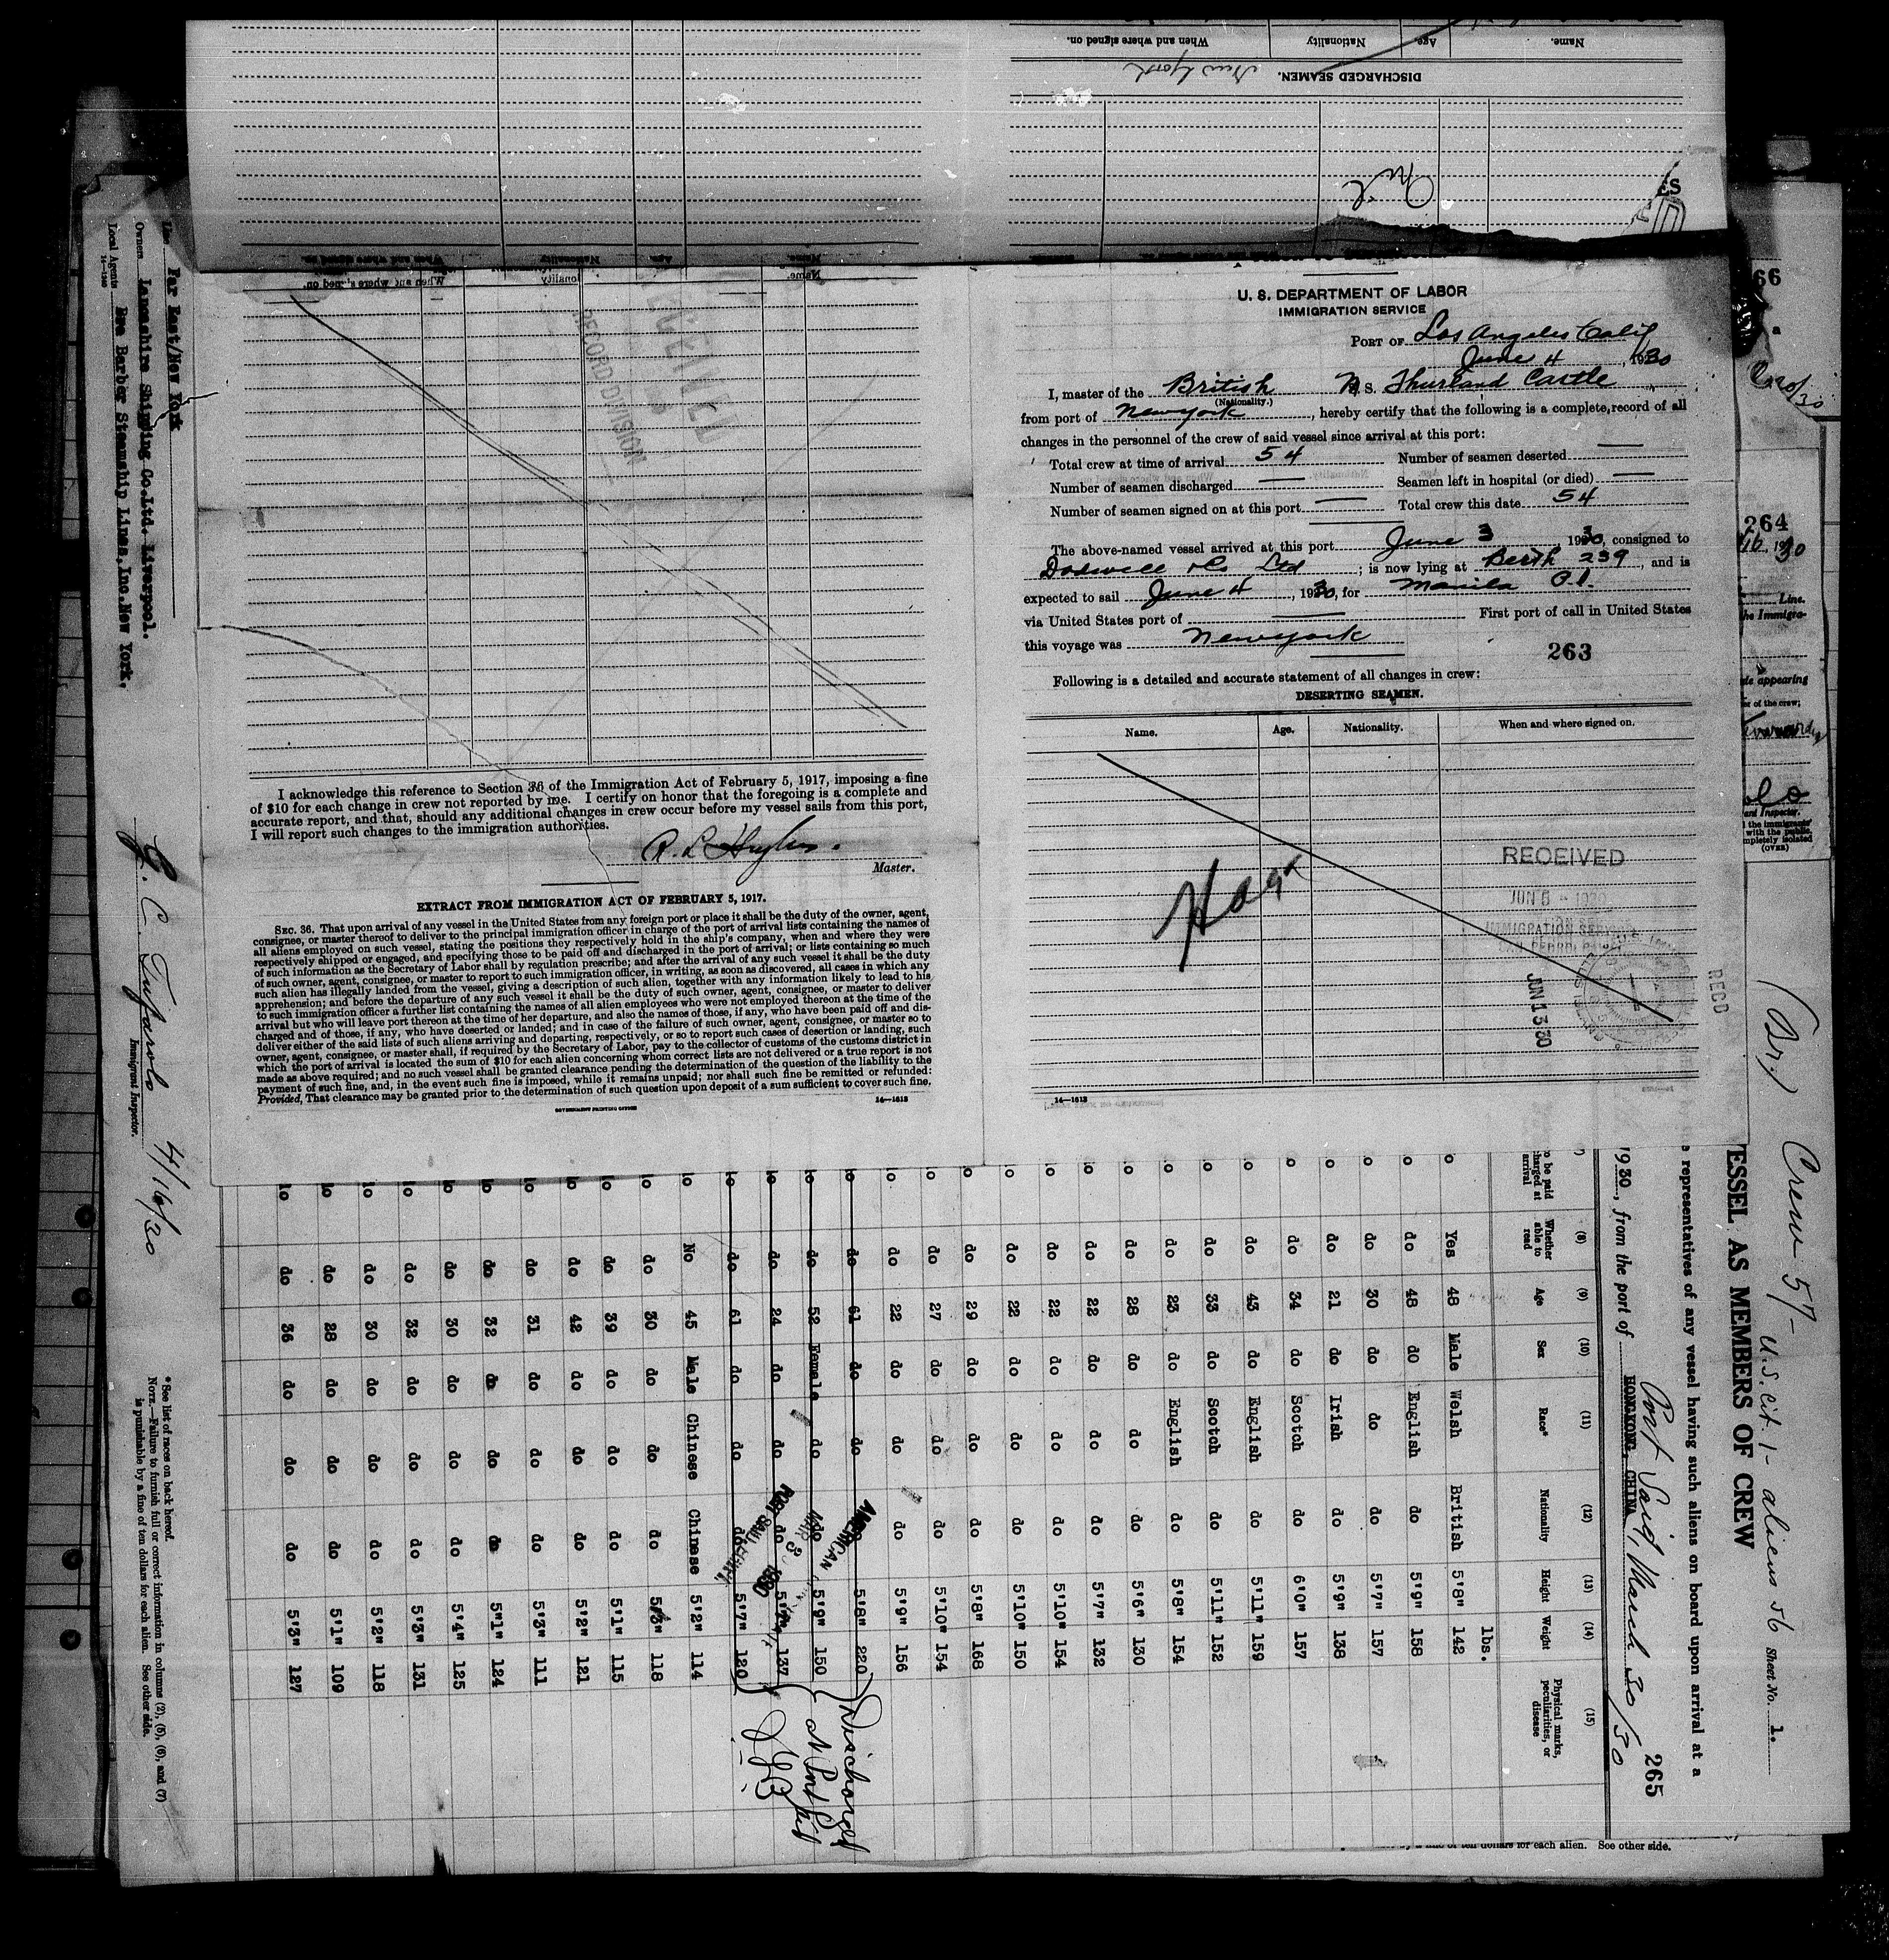 Name.
Age.
Nationality
When and where signed on.
DISCHARGED SEAMEN.
New York
U. S. DEPARTMENT OF LABOR
IMMIGRATION SERVICE
PORT OF Los Angeles Calif
June 4, 1930
I, master of the British M. S. Thurland Castle
(Nationality.)
from port of Newyork, hereby certify that the following is a complete record of all
changes in the personnel of the crew of said vessel since arrival at this port:
Total crew at time of arrival 54 Number of seamen deserted
Number of seamen discharged Seamen left in hospital (or died)
Number of seamen signed on at this port Total crew this date 54
The above-named vessel arrived at this port June 3, 1930, consigned to
Dodwell & Co Ltd; is now lying at Berth 239, and is
expected to sail June 4, 1930, for Manila P.I.
via United States port of First port of call in United States
this voyage was Newyork
263
Following is a detailed and accurate statement of all changes in crew:
DESERTING SEAMEN.
Name. Age. Nationality. When and where signed on.
RECEIVED
JUN 13 30
RECD
14—1613
RECEIVED
RECORD DIVISION
I acknowledge this reference to Section 36 of the Immigration Act of February 5, 1917, imposing a fine
of $10 for each change in crew not reported by me. I certify on honor that the foregoing is a complete and
accurate report, and that, should any additional changes in crew occur before my vessel sails from this port,
I will report such changes to the immigration authorities.
R. L Hughes.
Master.
EXTRACT FROM IMMIGRATION ACT OF FEBRUARY 5, 1917.
SEC. 36. That upon arrival of any vessel in the United States from any foreign port or place it shall be the duty of the owner, agent,
consignee, or master thereof to deliver to the principal immigration officer in charge of the port of arrival lists containing the names of
all aliens employed on such vessel, stating the positions they respectively hold in the ship's company, when and where they were
respectively shipped or engaged, and specifying those to be paid off and discharged in the port of arrival; or lists containing so much
of such information as the Secretary of Labor shall by regulation prescribe; and after the arrival of any such vessel it shall be the duty
of such owner, agent, consignee, or master to report to such immigration officer, in writing, as soon as discovered, all cases in which any
such alien has illegally landed from the vessel, giving a description of such alien, together with any information likely to lead to his
apprehension; and before the departure of any such vessel it shall be the duty of such owner, agent, consignee, or master to deliver
to such immigration officer a further list containing the names of all alien employees who were not employed thereon at the time of the
arrival but who will leave port thereon at the time of her departure, and also the names of those, if any, who have been paid off and dis-
charged and of those, if any, who have deserted or landed; and in case of the failure of such owner, agent, consignee, or master so to
deliver either of the said lists of such aliens arriving and departing, respectively, or so to report such cases of desertion or landing, such
owner, agent, consignee, or master shall, if required by the Secretary of Labor, pay to the collector of customs of the customs district in
which the port of arrival is located the sum of $10 for each alien concerning whom correct lists are not delivered or a true report is not
made as above required; and no such vessel shall be granted clearance pending the determination of the question of the liability to the
payment of such fine, and, in the event such fine is imposed, while it remains unpaid; nor shall such fine be remitted or refunded:
Provided, That clearance may be granted prior to the determination of such question upon deposit of a sum sufficient to cover such fine.
GOVERNMENT PRINTING OFFICE
14—1613
(Br.) Crew 57- U.S. Cit. 1- aliens 56 Sheet No. 1.
ESSEL AS MEMBERS OF CREW
representatives of any vessel having such aliens on board upon arrival at a
265
1930, from the port of HONGKONG, CHINA Port Said, March 30/30
(8) (9) (10) (11) (12) (13) (14) (15)
to be paid charged at arrival Whether able to read Age Sex Race* Nationality Height Weight Physical marks, peculiarities, or disease
lbs.
Yes 48 Male Welsh British 5'8" 142
do 48 do English do 5'9" 158
do 30 do do do 5'7" 157
do 21 do Irish do 5'9" 138
do 34 do Scotch do 6'0" 157
do 43 do English do 5'11" 159
do 33 do Scotch do 5'11" 152
do 23 do English do 5'8" 154
do 28 do do do 5'6" 130
do 22 do do do 5'7" 132
do 22 do do do 5'10" 154
do 22 do do do 5'10" 150
do 29 do do do 5'8" 168
do 27 do do do 5'10" 154
do 22 do do do 5'9" 156
do 61 do do do 5'8" 220
do 52 Female do do 5'9" 150
do 24 do do do 5'7" 137
do 61 do do do 5'7" 120
Discharged
at Port Said
AMERICAN
1930
No 45 Male Chinese Chinese 5'2" 114
do 30 do do do 5'3" 118
do 39 do do do 5'1" 115
do 42 do do do 5'2" 121
do 31 do do do 5'3" 111
do 32 do do do 5'1" 124
do 30 do do do 5'4" 125
do 32 do do do 5'3" 131
do 30 do do do 5'2" 118
do 28 do do do 5'1" 109
do 36 do do do 5'3" 127
*See list of races on back hereof.
NOTE.—Failure to furnish full or correct information in columns (2), (5), (6), and (7)
is punishable by a fine of ten dollars for each alien. See other side.
Line Far East/New York
Owners Lancashire Shipping Co.Ltd. Liverpool.
Local Agents Barber Steamship Lines, Inc. New York.
14-1240
4/16/30
Immigrant Inspector.
66
264
Line.
the Immigra-
appearing
of the crew;
Inspector.
the immigrants'
with the public
mpletely isolated
(OVER)
for each alien. See other side.